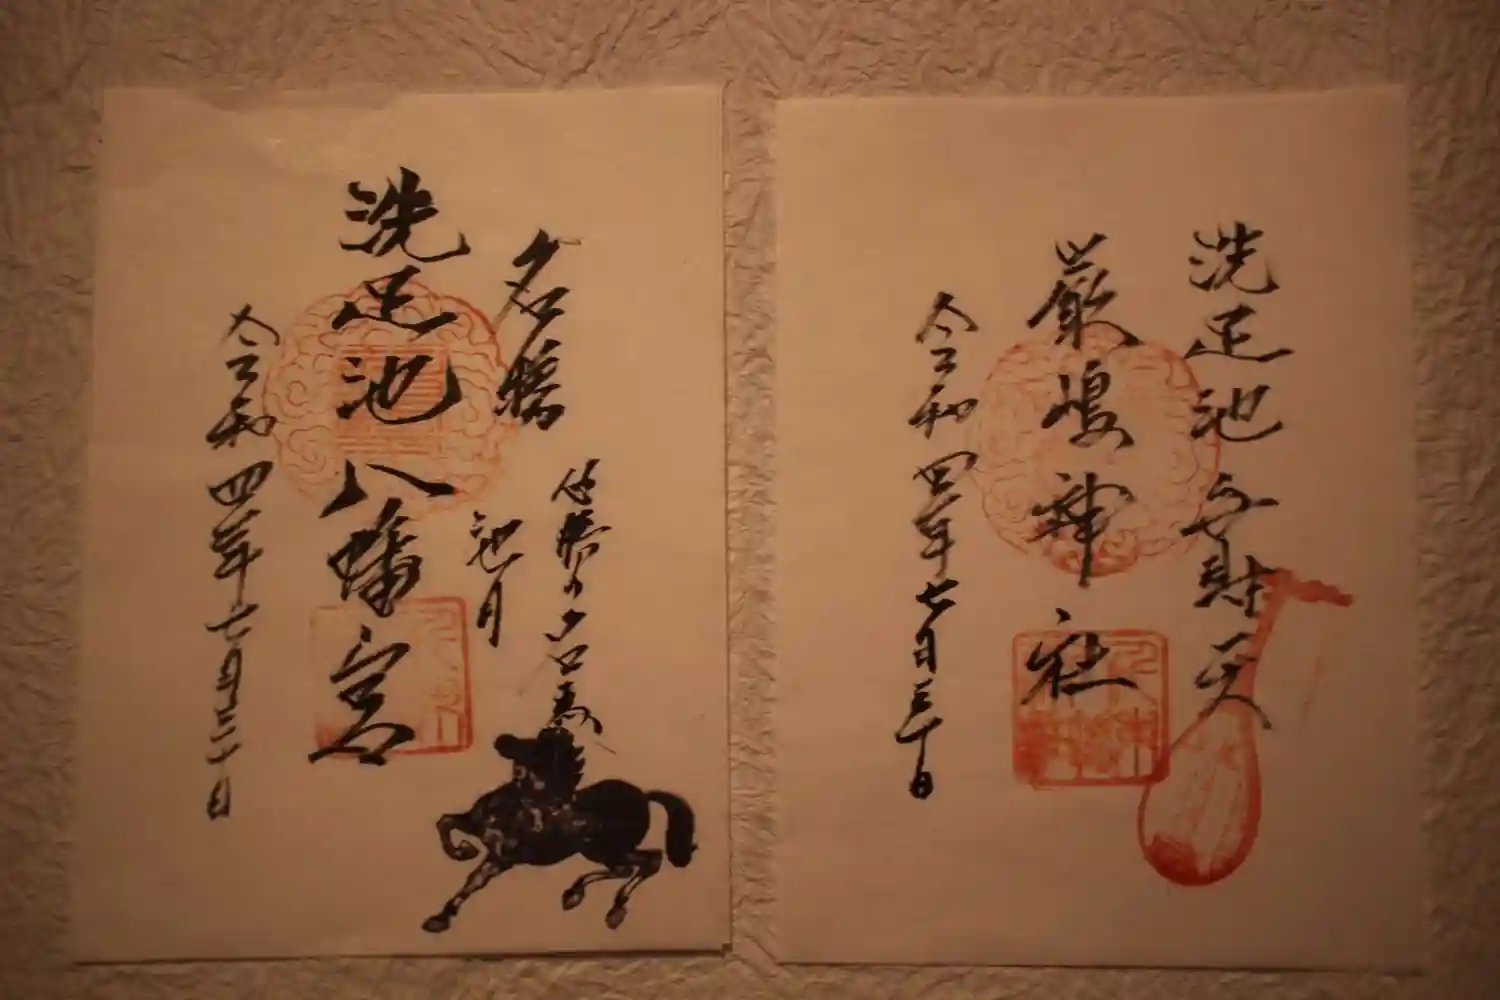 洗足池弁財天
厳嶋神社
令和四年七月三十日
名勝
名馬
池月
洗足池八幡宮
令和四年七月三十日